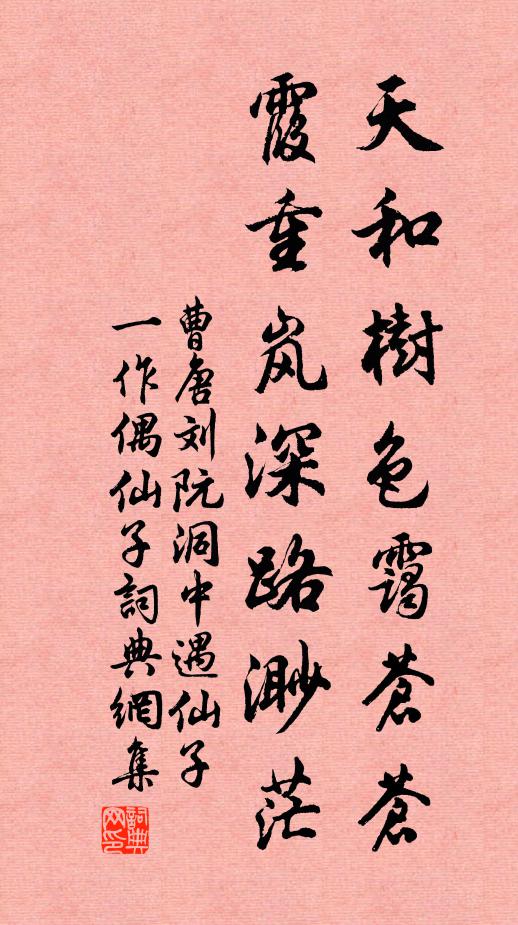 天和樹色靄蒼蒼
霞重岚深路渺茫
曹唐刘阮洞中遇仙子
一作偶仙子詞典網集
詞典网印